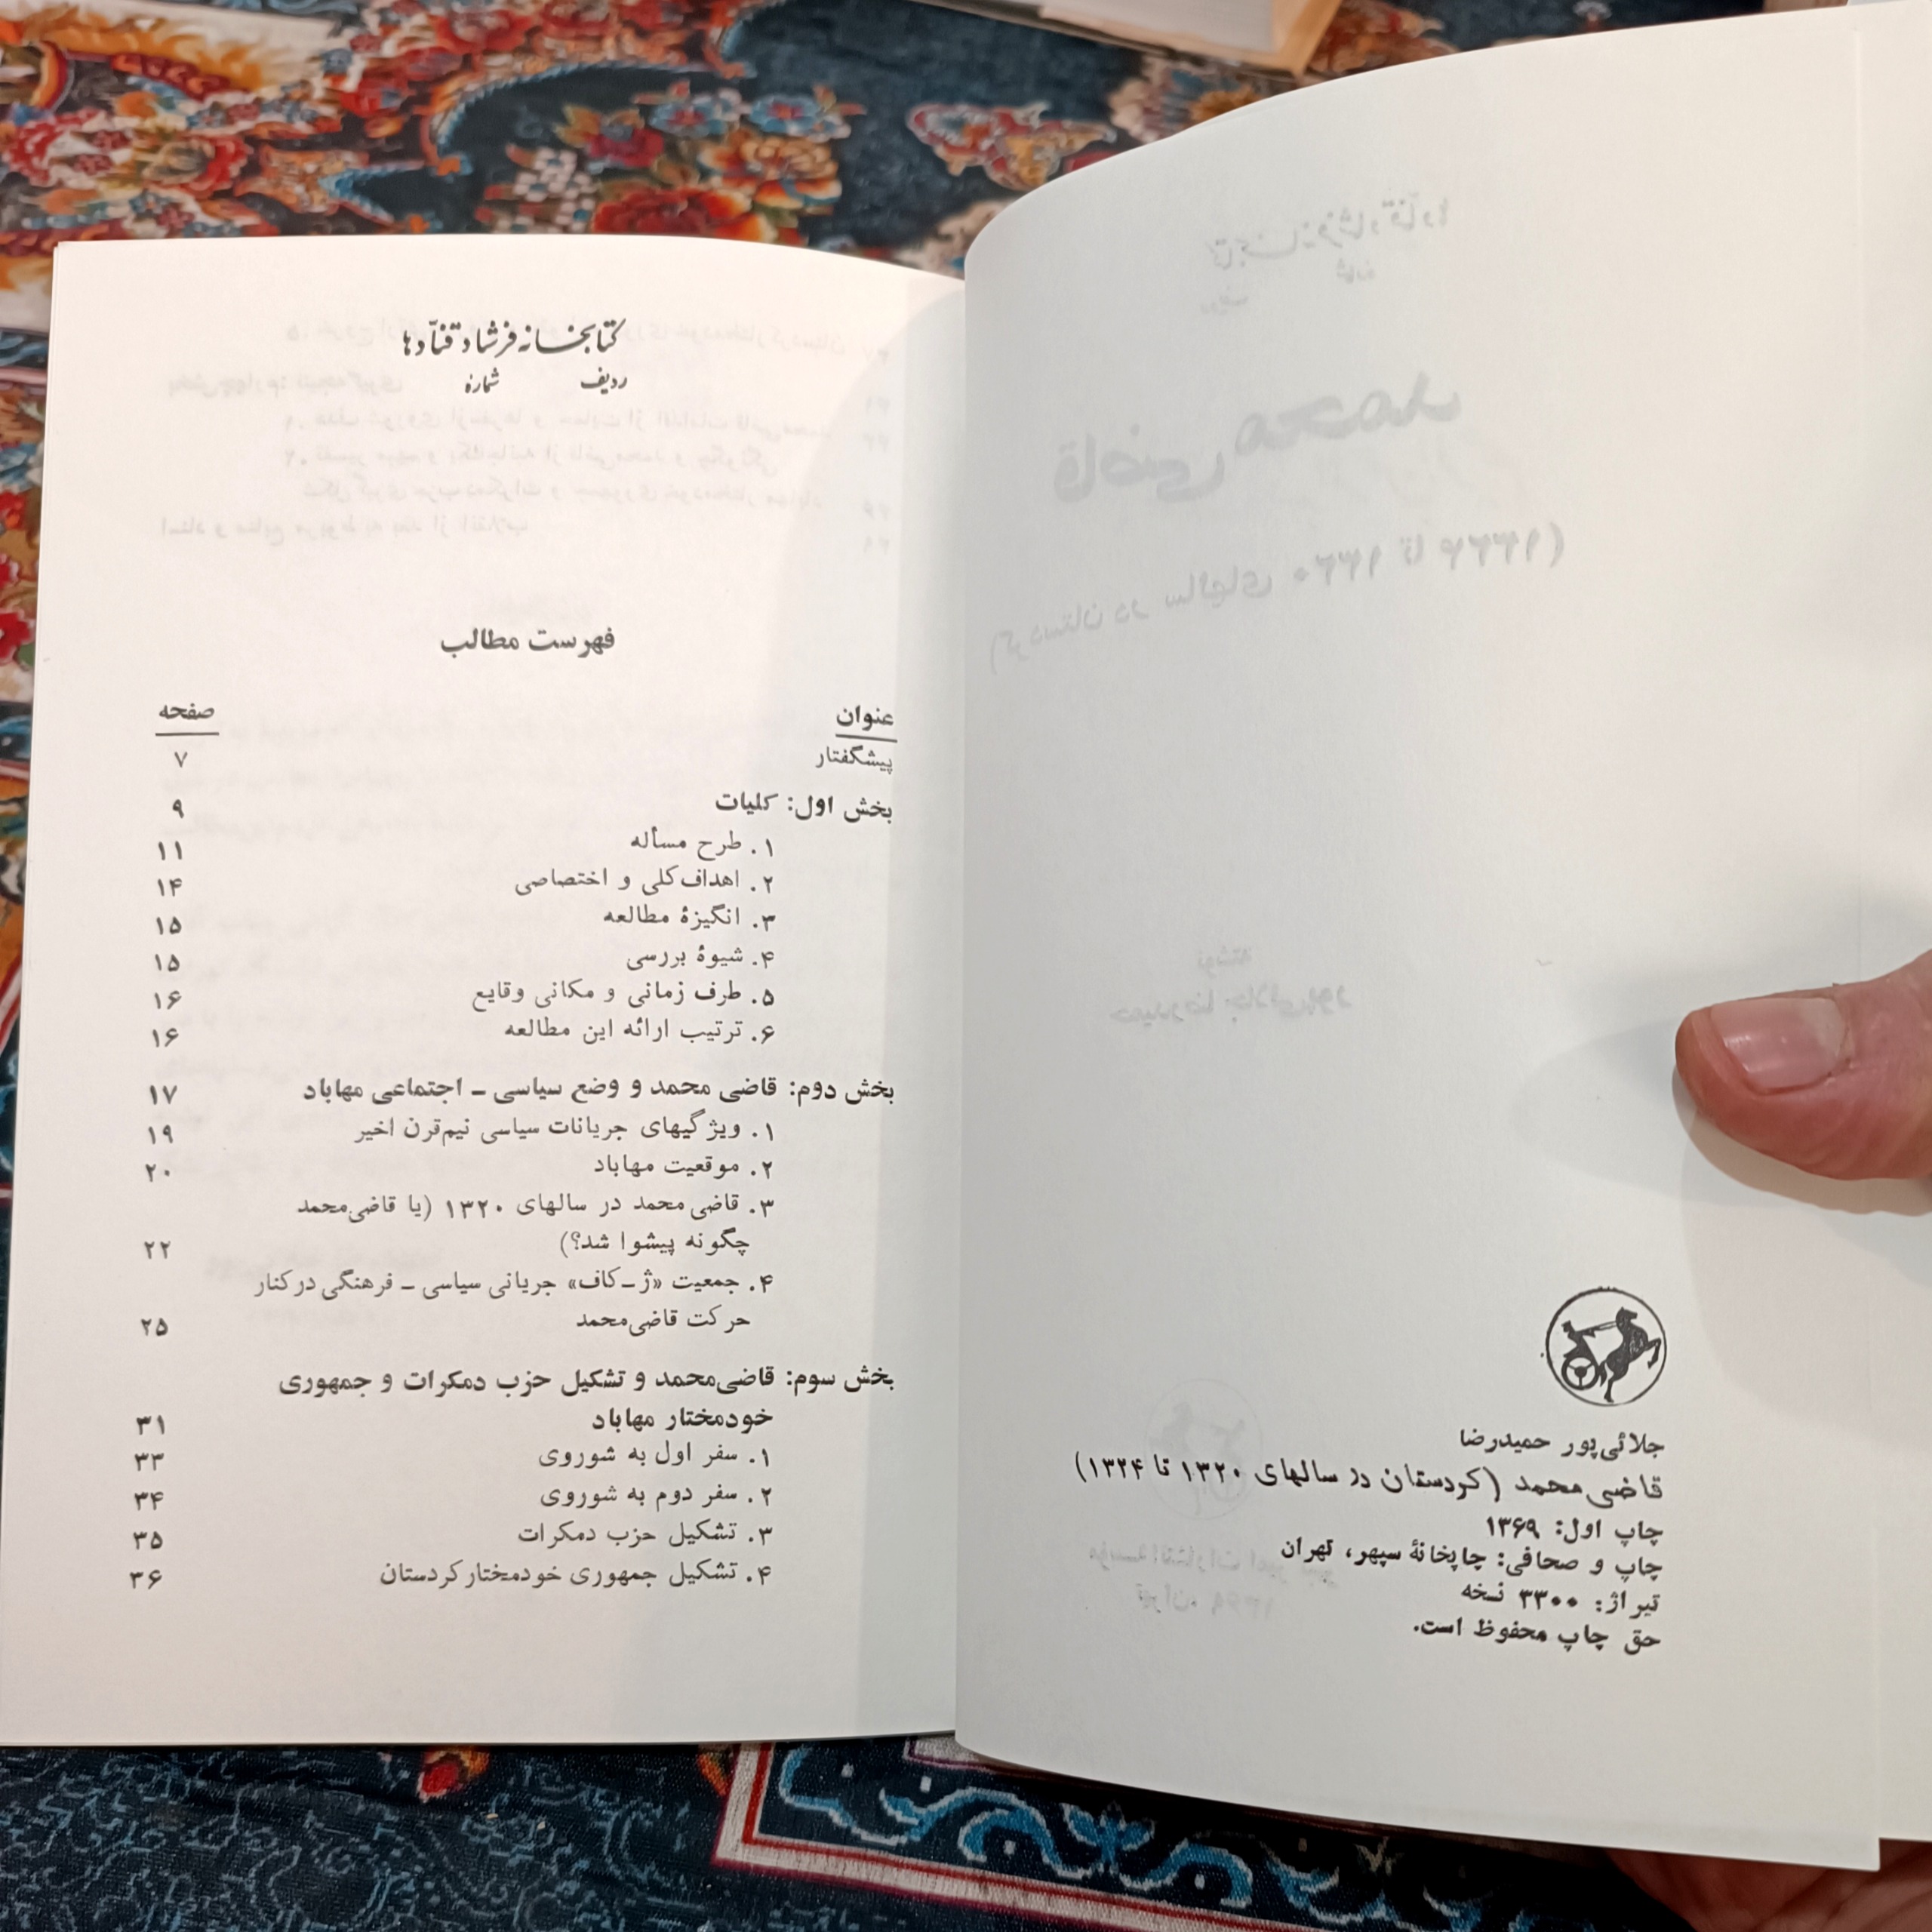 جلائی‌پور حمیدرضا
قاضی‌محمد (کردستان در سالهای ۱۳۲۰ تا ۱۳۲۴)
چاپ اول: ۱۳۶۹
چاپ و صحافی: چاپخانهٔ سپهر، تهران
تیراژ: ۳۳۰۰ نسخه
حق چاپ محفوظ است.
کتابخانه فرشاد قنّادها
ردیف شماره
فهرست مطالب
عنوان صفحه
پیشگفتار ۷
بخش اول: کلیات ۹
۱. طرح مسأله ۱۱
۲. اهداف کلی و اختصاصی ۱۴
۳. انگیزهٔ مطالعه ۱۵
۴. شیوهٔ بررسی ۱۵
۵. ظرف زمانی و مکانی وقایع ۱۶
۶. ترتیب ارائه این مطالعه ۱۶
بخش دوم: قاضی محمد و وضع سیاسی ـ اجتماعی مهاباد ۱۷
۱. ویژگیهای جریانات سیاسی نیم‌قرن اخیر ۱۹
۲. موقعیت مهاباد ۲۰
۳. قاضی محمد در سالهای ۱۳۲۰ (یا قاضی‌محمد
چگونه پیشوا شد؟) ۲۲
۴. جمعیت «ژ ـ کاف» جریانی سیاسی ـ فرهنگی در کنار
حرکت قاضی‌محمد ۲۵
بخش سوم: قاضی‌محمد و تشکیل حزب دمکرات و جمهوری
خودمختار مهاباد ۳۱
۱. سفر اول به شوروی ۳۳
۲. سفر دوم به شوروی ۳۴
۳. تشکیل حزب دمکرات ۳۵
۴. تشکیل جمهوری خودمختار کردستان ۳۶